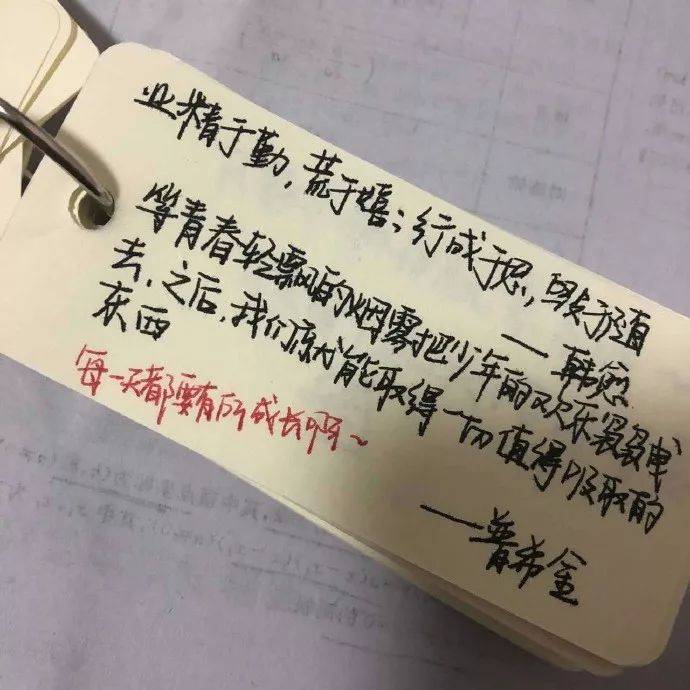 业精于勤，荒于嬉；行成于思，毁于随
——韩愈
等青春轻飘的烟雾把少年的欢乐袅袅曳
去，之后，我们就能取得一切值得吸取的
东西
——普希金
每一天都要有所成长呀~